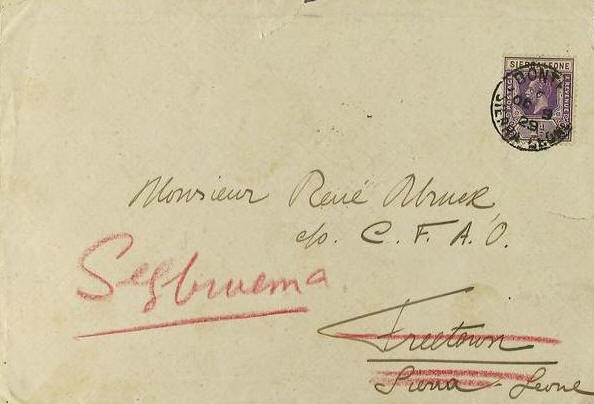 SIERRA LEONE
POSTAGE & REVENUE
BONT
OC 9
29
SIERRA LEONE
Monsieur René
c/o. C. F. A. O.
Segbwema
Freetown
Sierra-Leone